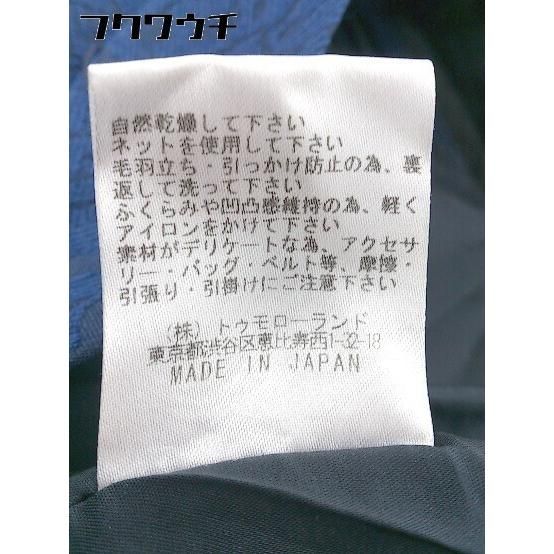 フクワウチ
自然乾燥して下さい
ネットを使用して下さい
毛羽立ち・引っかけ防止の為、裏
返して洗って下さい
ふくらみや凹凸感維持の為、軽く
アイロンをかけて下さい
素材がデリケートな為、アクセサ
リー・バッグ・ベルト等、摩擦・
引張り・引掛けにご注意下さい
(株) トゥモローランド
東京都渋谷区恵比寿西1-32-18
MADE IN JAPAN